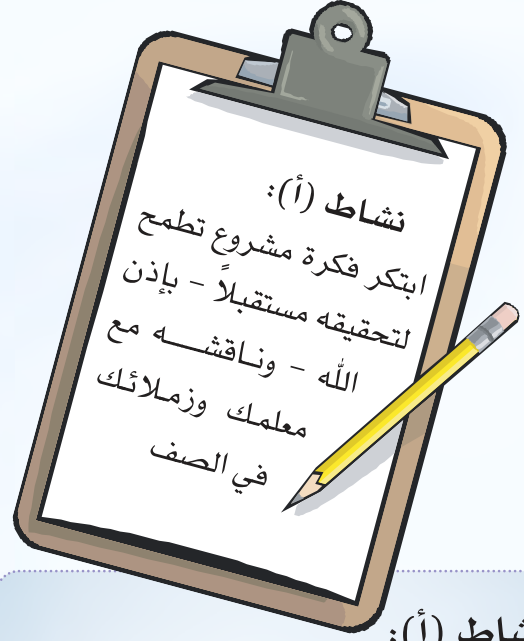 نشاط (أ):
ابتكر فكرة مشروع تطمح
لتحقيقه مستقبلاً - بإذن
الله - وناقشه مع
معلمك وزملائك
في الصف
نشاط (أ):